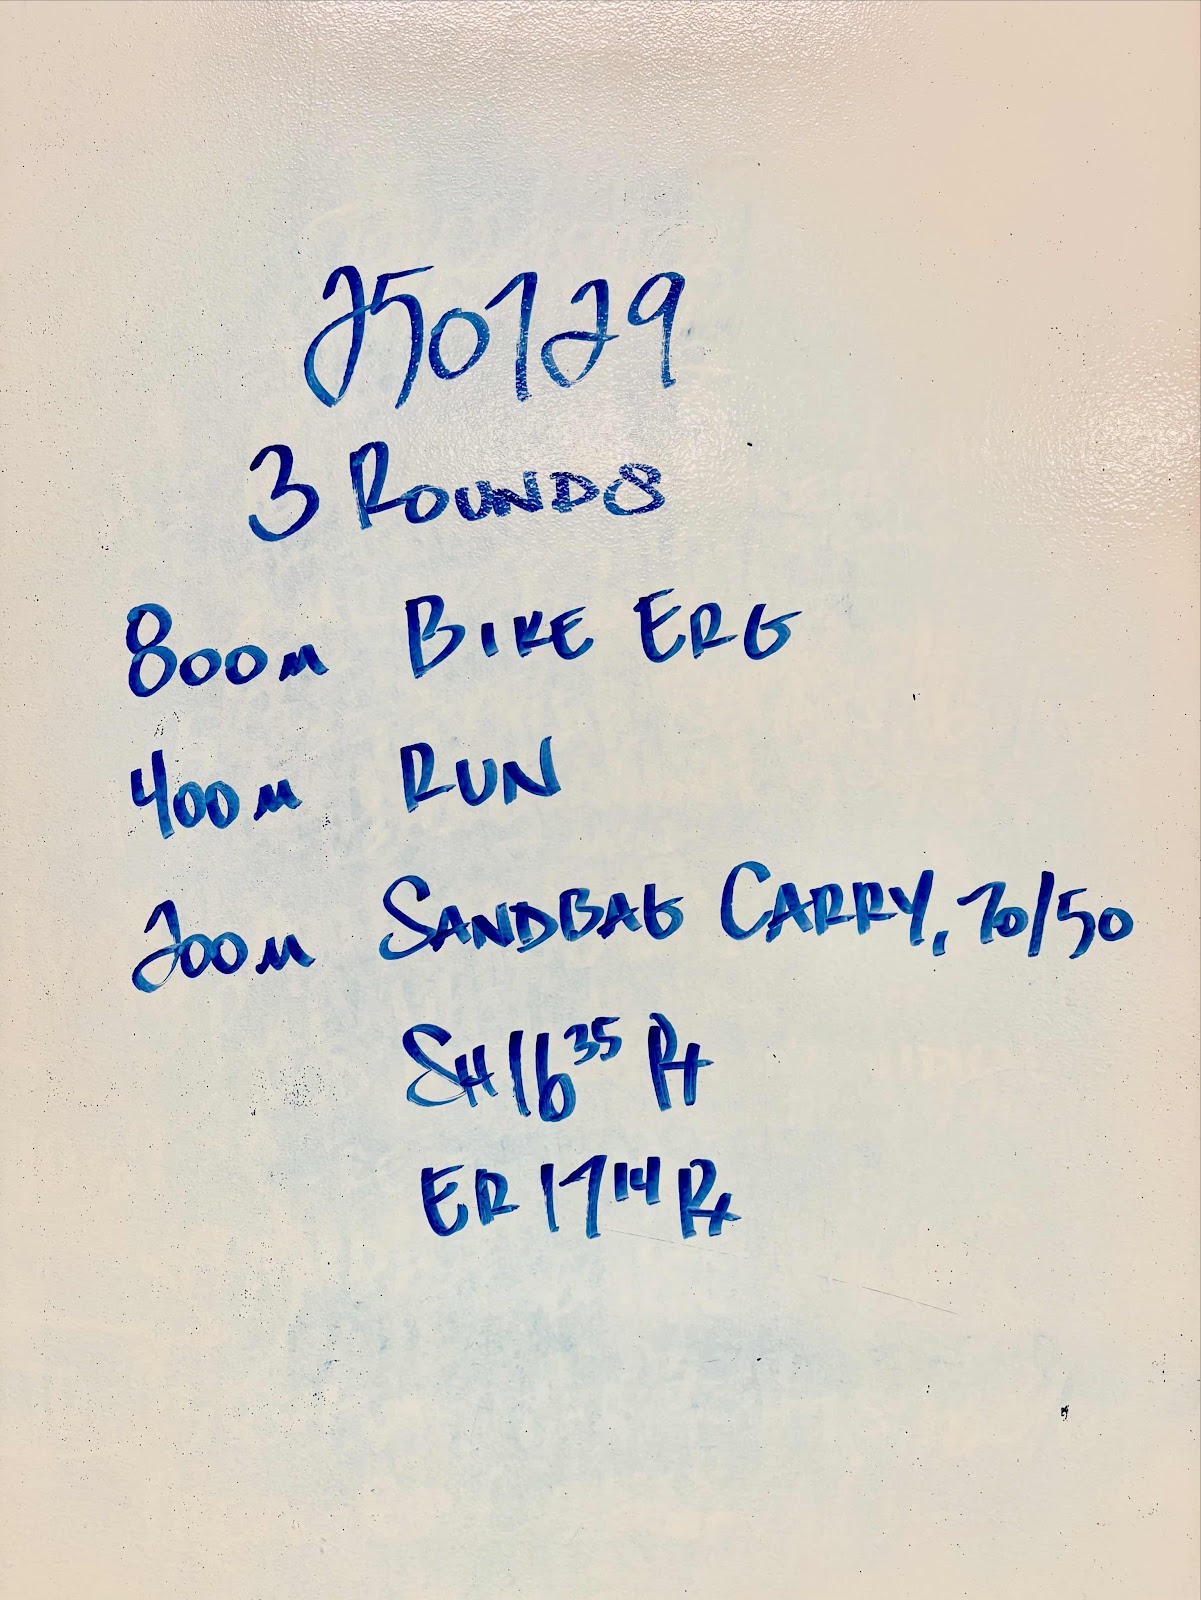 250729
3 ROUNDS
800M BIKE ERG
400M RUN
200M SANDBAG CARRY, 70/50
SH 16 35 Rx
ER 17 14 Rx